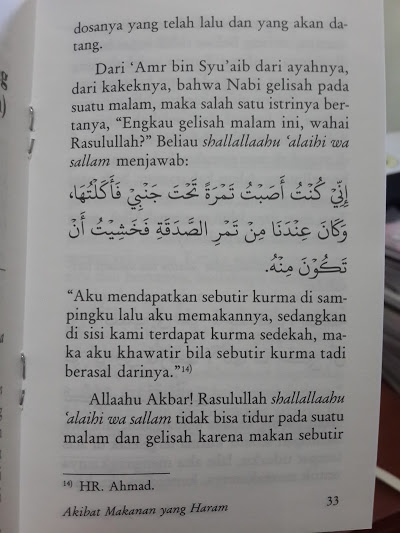 dosanya yang telah lalu dan yang akan da-
tang.
Dari ‘Amr bin Syu’aib dari ayahnya,
dari kakeknya, bahwa Nabi gelisah pada
suatu malam, maka salah satu istrinya ber-
tanya, “Engkau gelisah malam ini, wahai
Rasulullah?” Beliau shallallaahu ‘alaihi wa
sallam menjawab:
إِنِّيْ كُنْتُ أَصَبْتُ تَمْرَةً تَحْتَ جَنْبِيْ فَأَكَلْتُهَا،
وَكَانَ عِنْدَنَا مِنْ تَمْرِ الصَّدَقَةِ فَخَشِيْتُ أَنْ
تَكُوْنَ مِنْهُ.
“Aku mendapatkan sebutir kurma di sam-
pingku lalu aku memakannya, sedangkan
di sisi kami terdapat kurma sedekah, ma-
ka aku khawatir bila sebutir kurma tadi
berasal darinya.”¹⁴⁾
Allaahu Akbar! Rasulullah shallallaahu
‘alaihi wa sallam tidak bisa tidur pada suatu
malam dan gelisah karena makan sebutir
¹⁴⁾ HR. Ahmad.
Akibat Makanan yang Haram 33